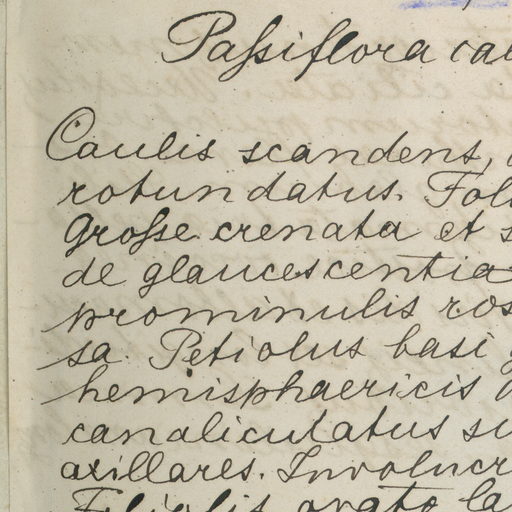 Paſsiflora cae
Caulis scandens,
rotundatus. Foli
Groſse crenata et s
de glaucescentia
prominulis ros
sa. Petiolus basi g
hemisphaericis
canaliculatus su
axillares. Involucr
Filiolis ovato la